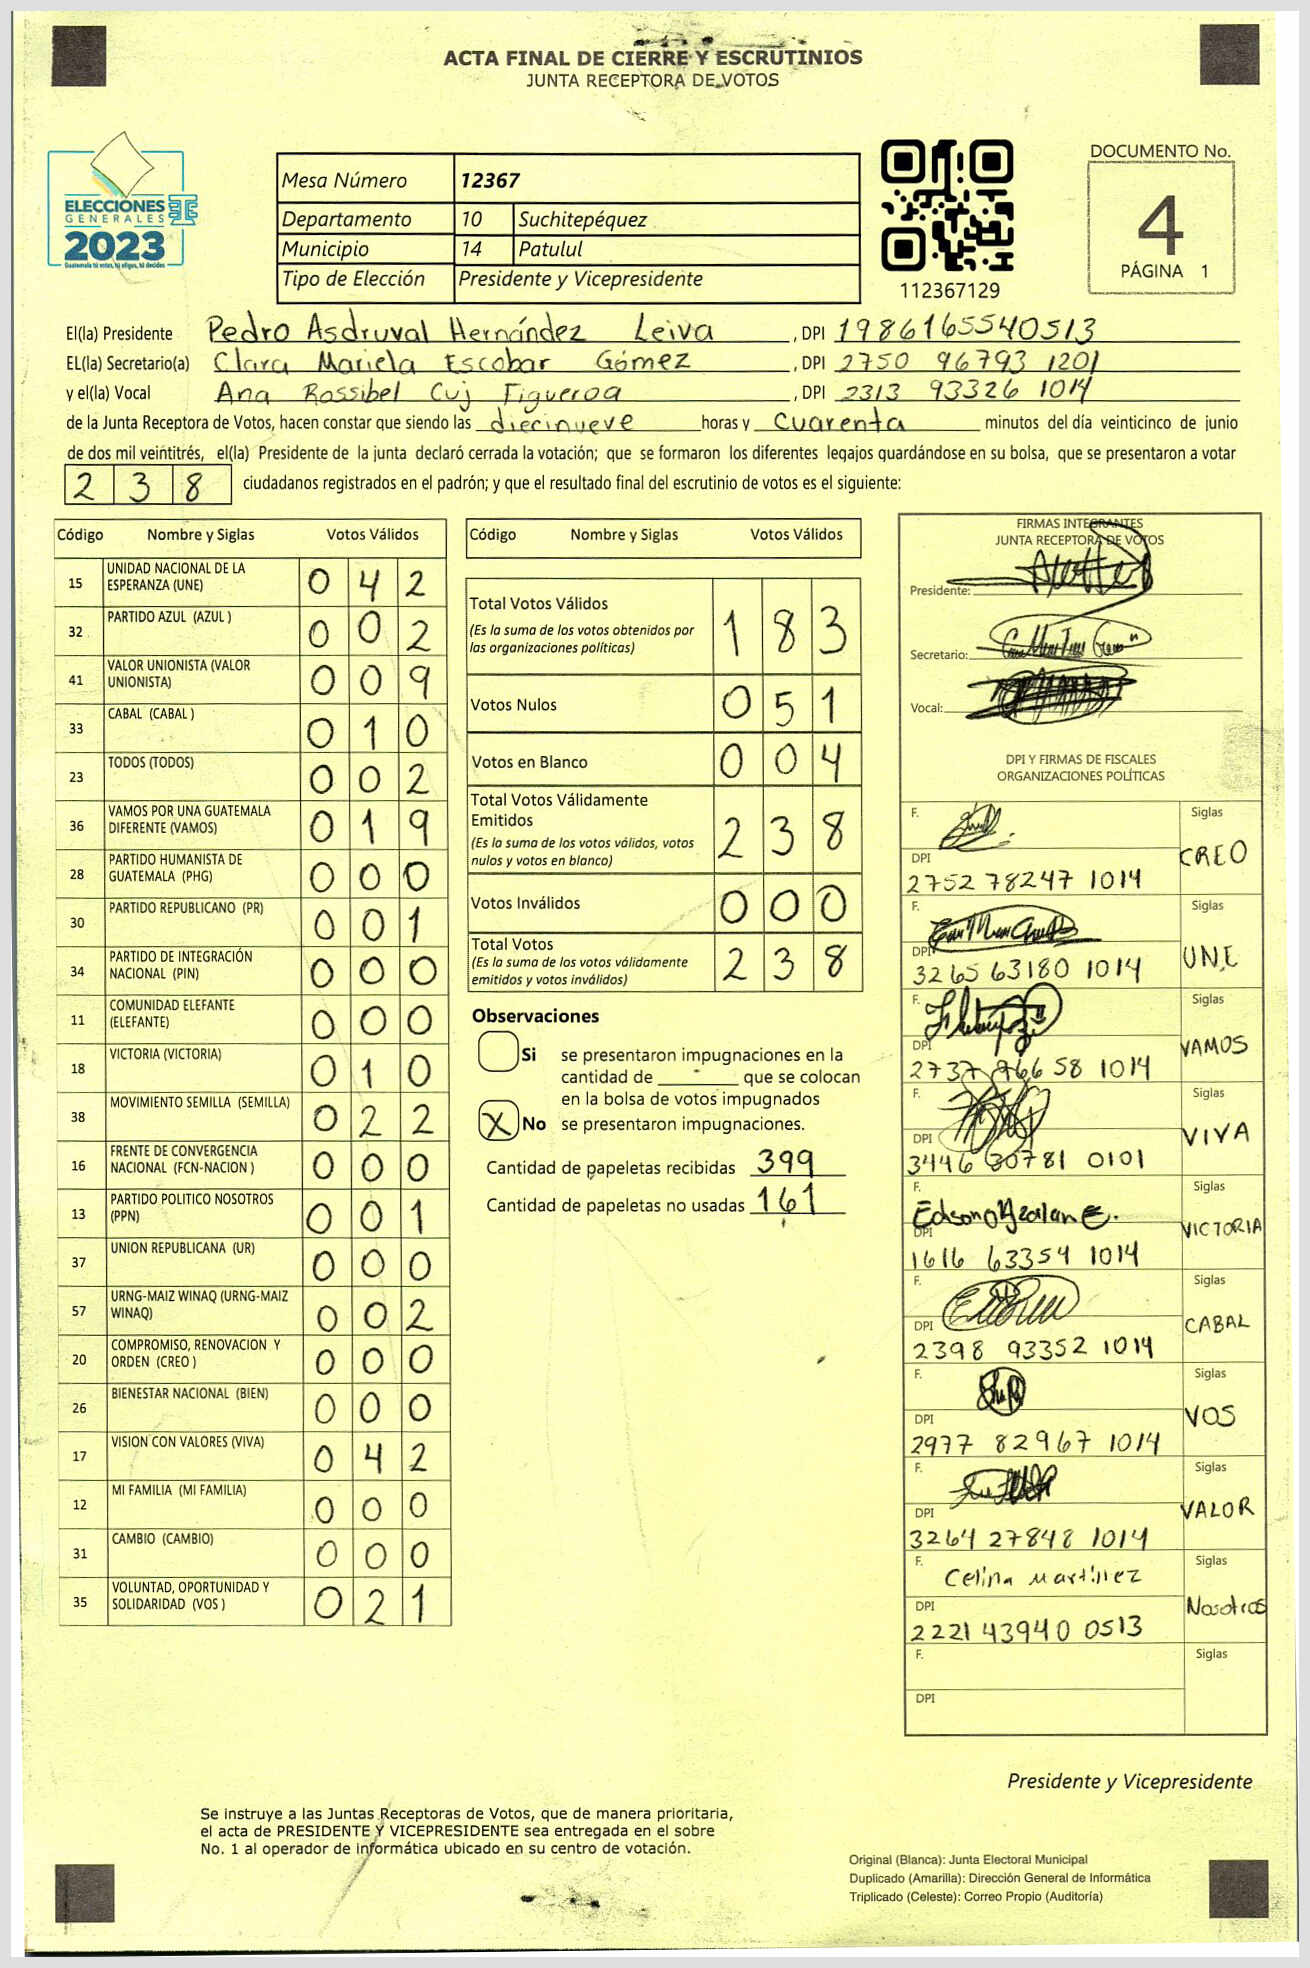 ACTA FINAL DE CIERRE Y ESCRUTINIOS
JUNTA RECEPTORA DE VOTOS
ELECCIONES
GENERALES
2023
Guatemala tú votas, tú eliges, tú decides
Mesa Número 12367
Departamento 10 Suchitepéquez
Municipio 14 Patulul
Tipo de Elección Presidente y Vicepresidente
112367129
DOCUMENTO No.
4
PÁGINA 1
El(la) Presidente Pedro Asdruval Hernández Leiva, DPI 1986165540513
EL(la) Secretario(a) Clara Mariela Escobar Gómez, DPI 2750 96793 1201
y el(la) Vocal Ana Rossibel Cuj Figueroa, DPI 2313 93326 1014
de la Junta Receptora de Votos, hacen constar que siendo las diecinueve horas y Cuarenta minutos del día veinticinco de junio
de dos mil veintitrés, el(la) Presidente de la junta declaró cerrada la votación; que se formaron los diferentes legajos guardándose en su bolsa, que se presentaron a votar
2 3 8 ciudadanos registrados en el padrón; y que el resultado final del escrutinio de votos es el siguiente:
Código Nombre y Siglas Votos Válidos
15 UNIDAD NACIONAL DE LA
ESPERANZA (UNE) 0 4 2
32 PARTIDO AZUL (AZUL ) 0 0 2
41 VALOR UNIONISTA (VALOR
UNIONISTA) 0 0 9
33 CABAL (CABAL ) 0 1 0
23 TODOS (TODOS) 0 0 2
36 VAMOS POR UNA GUATEMALA
DIFERENTE (VAMOS) 0 1 9
28 PARTIDO HUMANISTA DE
GUATEMALA (PHG) 0 0 0
30 PARTIDO REPUBLICANO (PR) 0 0 1
34 PARTIDO DE INTEGRACIÓN
NACIONAL (PIN) 0 0 0
11 COMUNIDAD ELEFANTE
(ELEFANTE) 0 0 0
18 VICTORIA (VICTORIA) 0 1 0
38 MOVIMIENTO SEMILLA (SEMILLA) 0 2 2
16 FRENTE DE CONVERGENCIA
NACIONAL (FCN-NACION ) 0 0 0
13 PARTIDO POLITICO NOSOTROS
(PPN) 0 0 1
37 UNION REPUBLICANA (UR) 0 0 0
57 URNG-MAIZ WINAQ (URNG-MAIZ
WINAQ) 0 0 2
20 COMPROMISO, RENOVACION Y
ORDEN (CREO ) 0 0 0
26 BIENESTAR NACIONAL (BIEN) 0 0 0
17 VISION CON VALORES (VIVA) 0 4 2
12 MI FAMILIA (MI FAMILIA) 0 0 0
31 CAMBIO (CAMBIO) 0 0 0
35 VOLUNTAD, OPORTUNIDAD Y
SOLIDARIDAD (VOS ) 0 2 1
Código Nombre y Siglas Votos Válidos
Total Votos Válidos 1 8 3
(Es la suma de los votos obtenidos por
las organizaciones políticas)
Votos Nulos 0 5 1
Votos en Blanco 0 0 4
Total Votos Válidamente
Emitidos 2 3 8
(Es la suma de los votos válidos, votos
nulos y votos en blanco)
Votos Inválidos 0 0 0
Total Votos 2 3 8
(Es la suma de los votos válidamente
emitidos y votos inválidos)
Observaciones
Si se presentaron impugnaciones en la
cantidad de - que se colocan
en la bolsa de votos impugnados
X No se presentaron impugnaciones.
Cantidad de papeletas recibidas 399
Cantidad de papeletas no usadas 161
FIRMAS INTEGRANTES
JUNTA RECEPTORA DE VOTOS
Presidente:
Secretario:
Vocal:
DPI Y FIRMAS DE FISCALES
ORGANIZACIONES POLÍTICAS
F. Siglas
CREO
DPI
2752 78247 1014
F. Siglas
UNE
DPI
3265 63180 1014
F. Siglas
VAMOS
DPI
2737 96658 1014
F. Siglas
VIVA
DPI
3446 80781 0101
F. Siglas
VICTORIA
DPI
1616 63354 1014
F. Siglas
CABAL
DPI
2398 93352 1014
F. Siglas
VOS
DPI
2977 82967 1014
F. Siglas
VALOR
DPI
3264 27848 1014
F. Celina Martínez Siglas
Nosotros
DPI
2221 43940 0513
F. Siglas
DPI
Presidente y Vicepresidente
Se instruye a las Juntas Receptoras de Votos, que de manera prioritaria,
el acta de PRESIDENTE Y VICEPRESIDENTE sea entregada en el sobre
No. 1 al operador de informática ubicado en su centro de votación.
Original (Blanca): Junta Electoral Municipal
Duplicado (Amarilla): Dirección General de Informática
Triplicado (Celeste): Correo Propio (Auditoría)